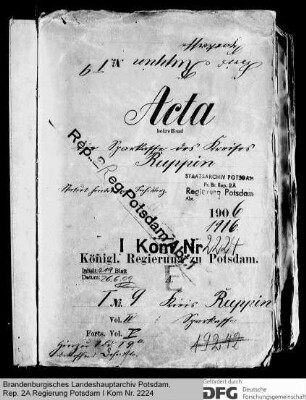 Kreis Ruppin Nr. 9
Acta
betreffend
die Sparkasse des Kreises
Ruppin
STAATSARCHIV POTSDAM
Pr. Br. Rep. 2A
Regierung Potsdam
Abt.
Rep. Reg. Potsdam
1906
1916
I Kom Nr 2224
Königl. Regierung zu Potsdam.
Inhalt: Blatt
Datum:
I No. 9 Kreis Ruppin
Vol. II Sparkasse
Forts. Vol. I
19242
Brandenburgisches Landeshauptarchiv Potsdam,
Rep. 2A Regierung Potsdam I Kom Nr. 2224
Gefördert durch
DFG Deutsche
Forschungsgemeinschaft